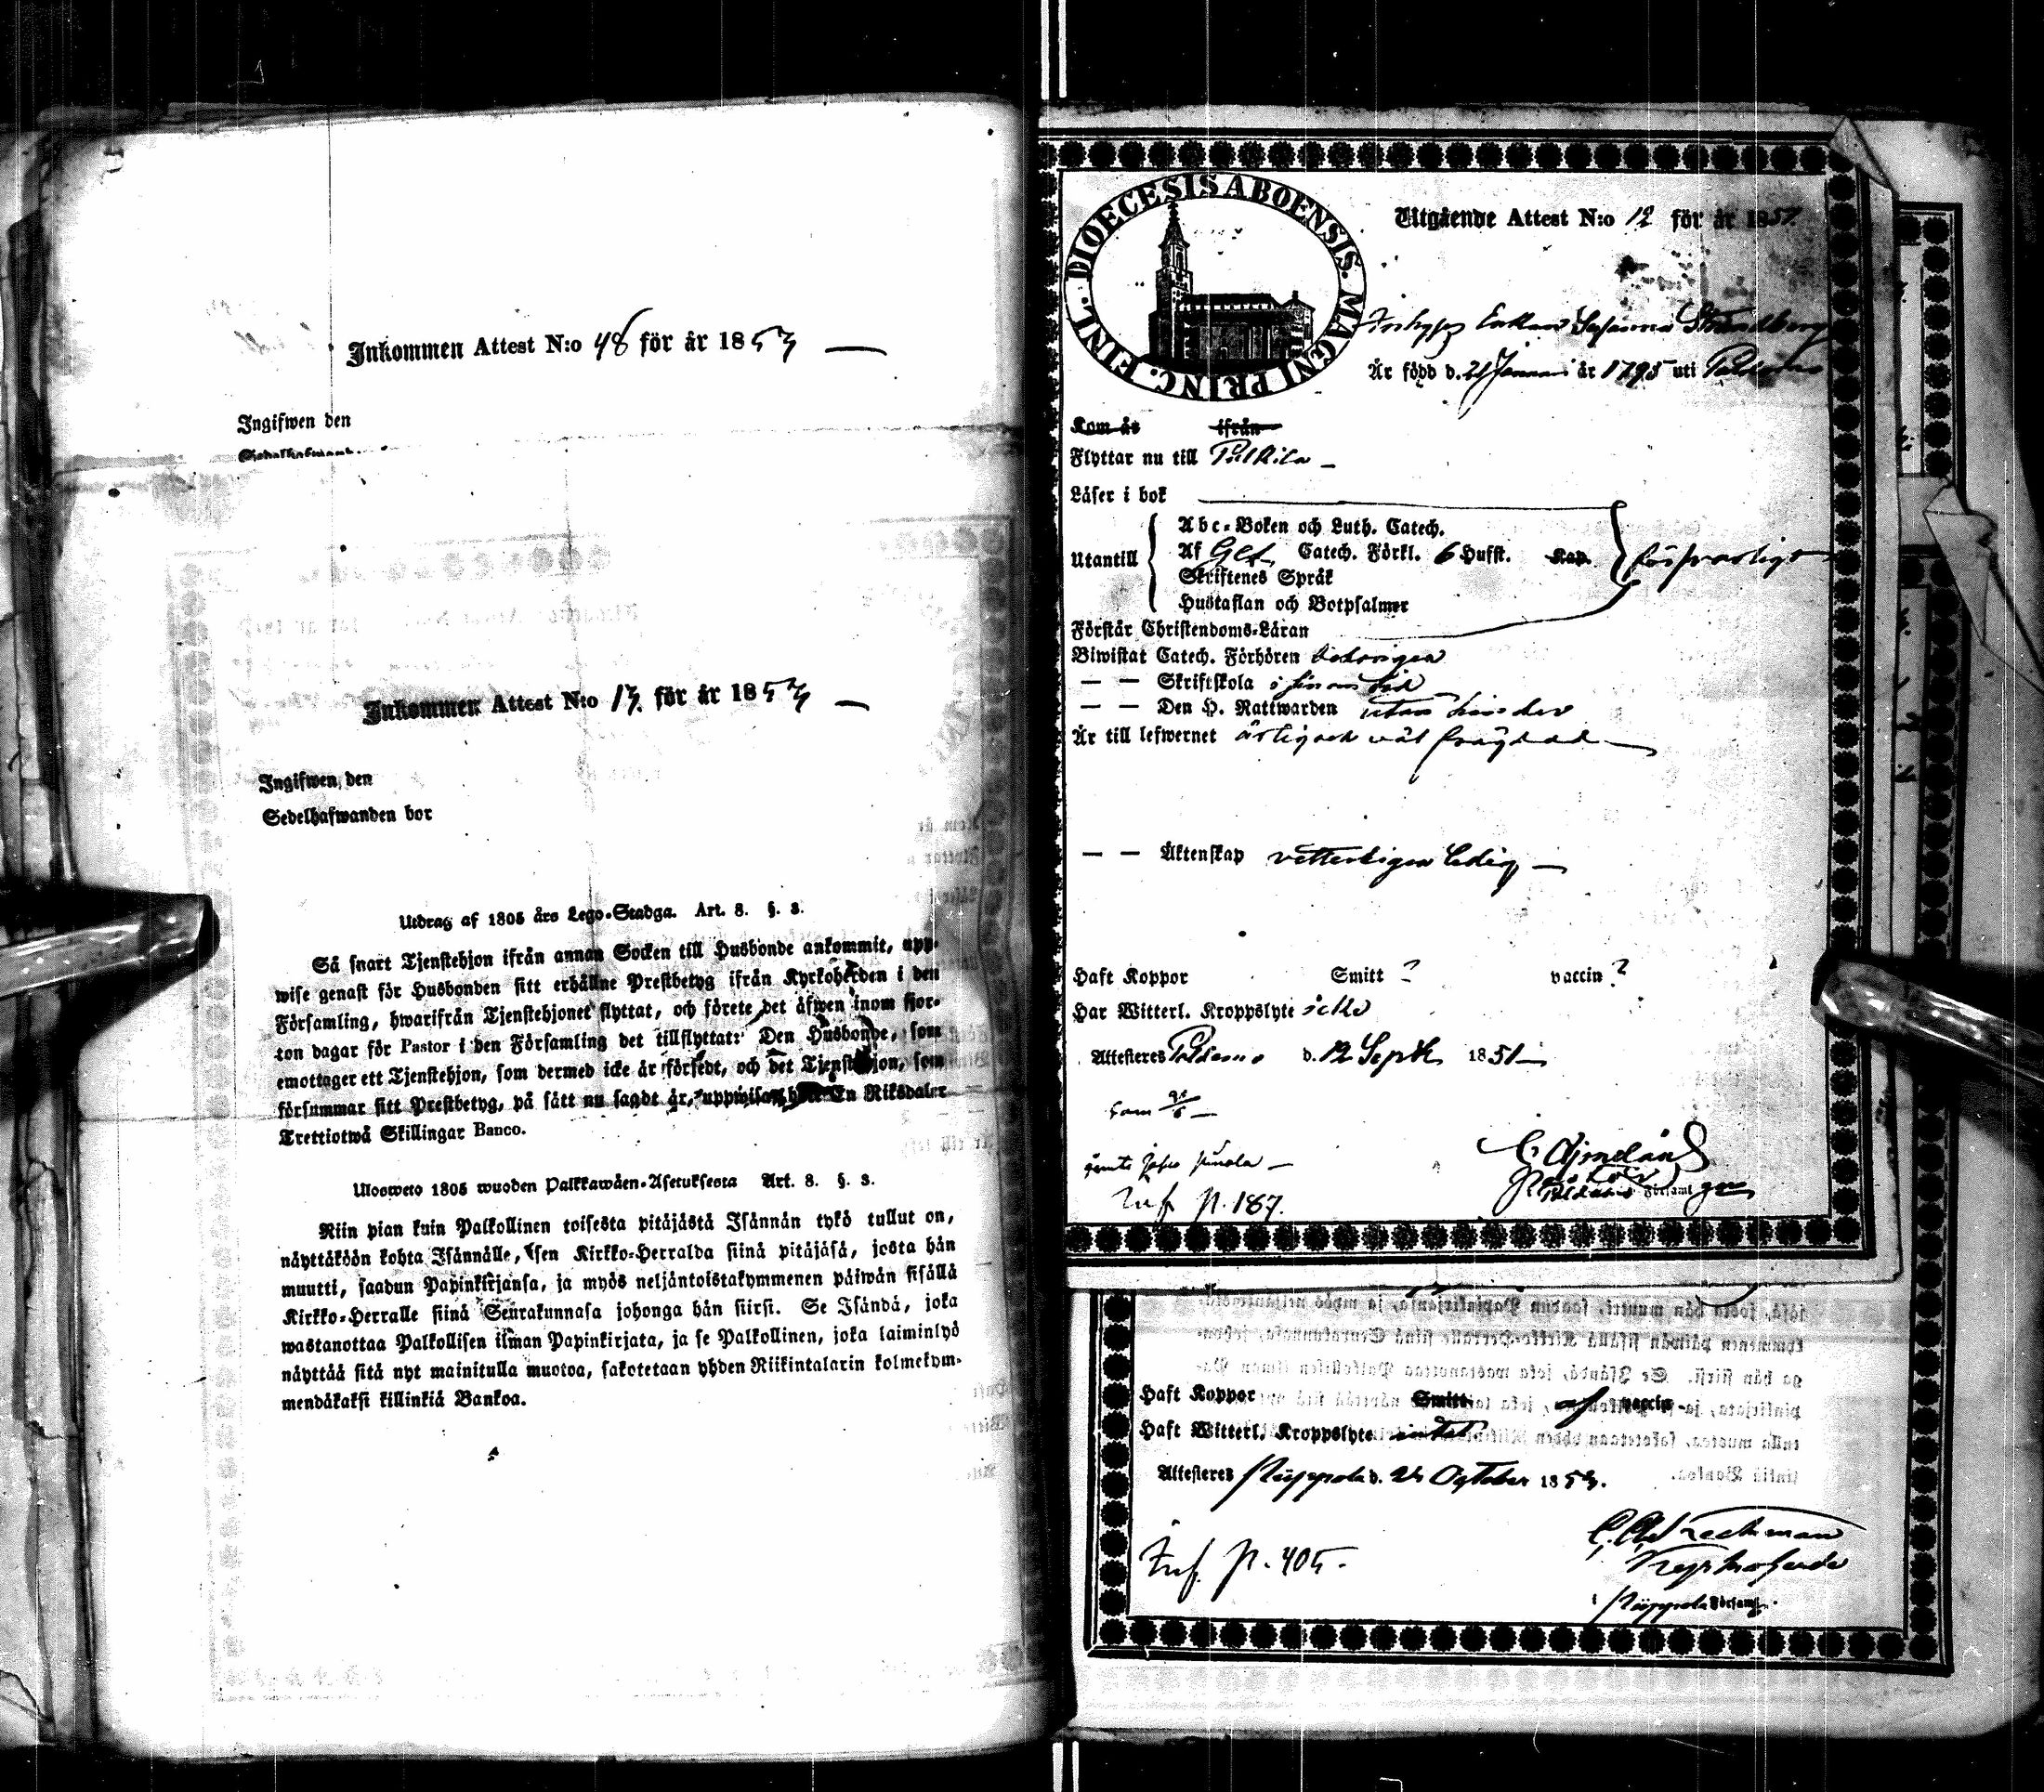 Inkommen Attest N:o 48 för år 1853
Ingifwen den
Inkommen Attest N:o 13 för år 1853
Ingifwen den
Sedelhafwanden bor
Utdrag af 1805 års Lego-Stadga. Art. 8. §. 3.
Så snart Tjenstehjon ifrån annan Socken till Husbonde ankommit, upp-
wise genast för Husbonden sitt erhållne Prestbetyg ifrån Kyrkoherden i den
Församling, hwarifrån Tjenstehjonet flyttat, och förete det äfwen inom fjor-
ton dagar för Pastor i den Församling det tillflyttat: Den Husbonde, som
emottager ett Tjenstehjon, som dermed icke är försedt, och det Tjenstehjon, som
försummar sitt Prestbetyg, på sätt nu sagdt är, uppwisa, böte En Riksdaler
Trettiotwå Skillingar Banco.
Ulosweto 1805 wuoden Palkkawäen-Asetuksesta Art. 8. §. 3.
Niin pian kuin Palkollinen toisesta pitäjästä Isännän tykö tullut on,
näyttäköön kohta Isännälle, sen Kirkko-Herralda siinä pitäjäsä, josta hän
muutti, saadun Papinkirjansa, ja myös neljäntoistakymmenen päiwän sisällä
Kirkko-Herralle siinä Seurakunnasa johonga hän siirsi. Se Isändä, joka
wastanottaa Palkollisen ilman Papinkirjata, ja se Palkollinen, joka laiminlyö
näyttää sitä nyt mainitulla muotoa, sakotetaan yhden Riikintalarin kolmekym-
mendäkaksi killinkiä Bankoa.
DIOECESIS ABOENSIS. MAGNI PRINC. FINL.
Utgående Attest N:o 12 för år 1851.
Enkan Susanna Strandberg
Är född d. 21 Januari år 1795 uti
Kom år ifrån
Flyttar nu till Pulkila
Läser i bok
Utantill
Abc-Boken och Luth. Catech.
Af Catech. Förkl. 6 Hufst. Kap.
Skriftenes Språk
Hustaflan och Botpsalmer
försvarligt
Förstår Christendoms-Läran
Biwistat Catech. Förhören
— — Skriftskola i sin tid
— — Den H. Nattwarden utan hinder
Är till lefwernet ärlig och väl frägdad
— — Äktenskap vetterligen ledig
Haft Koppor Smitt ? vaccin ?
Har Witterl. Kroppslyte icke
Attesteres d. 12 Septbr 1851
Inf. p. 187.
Pastor
Församl
Haft Koppor Smitt af vaccin
Haft Witterl. Kroppslyte intet
Attesteres d. October 1853.
Inf. p. 405.
Kyrkoherde
Församl.